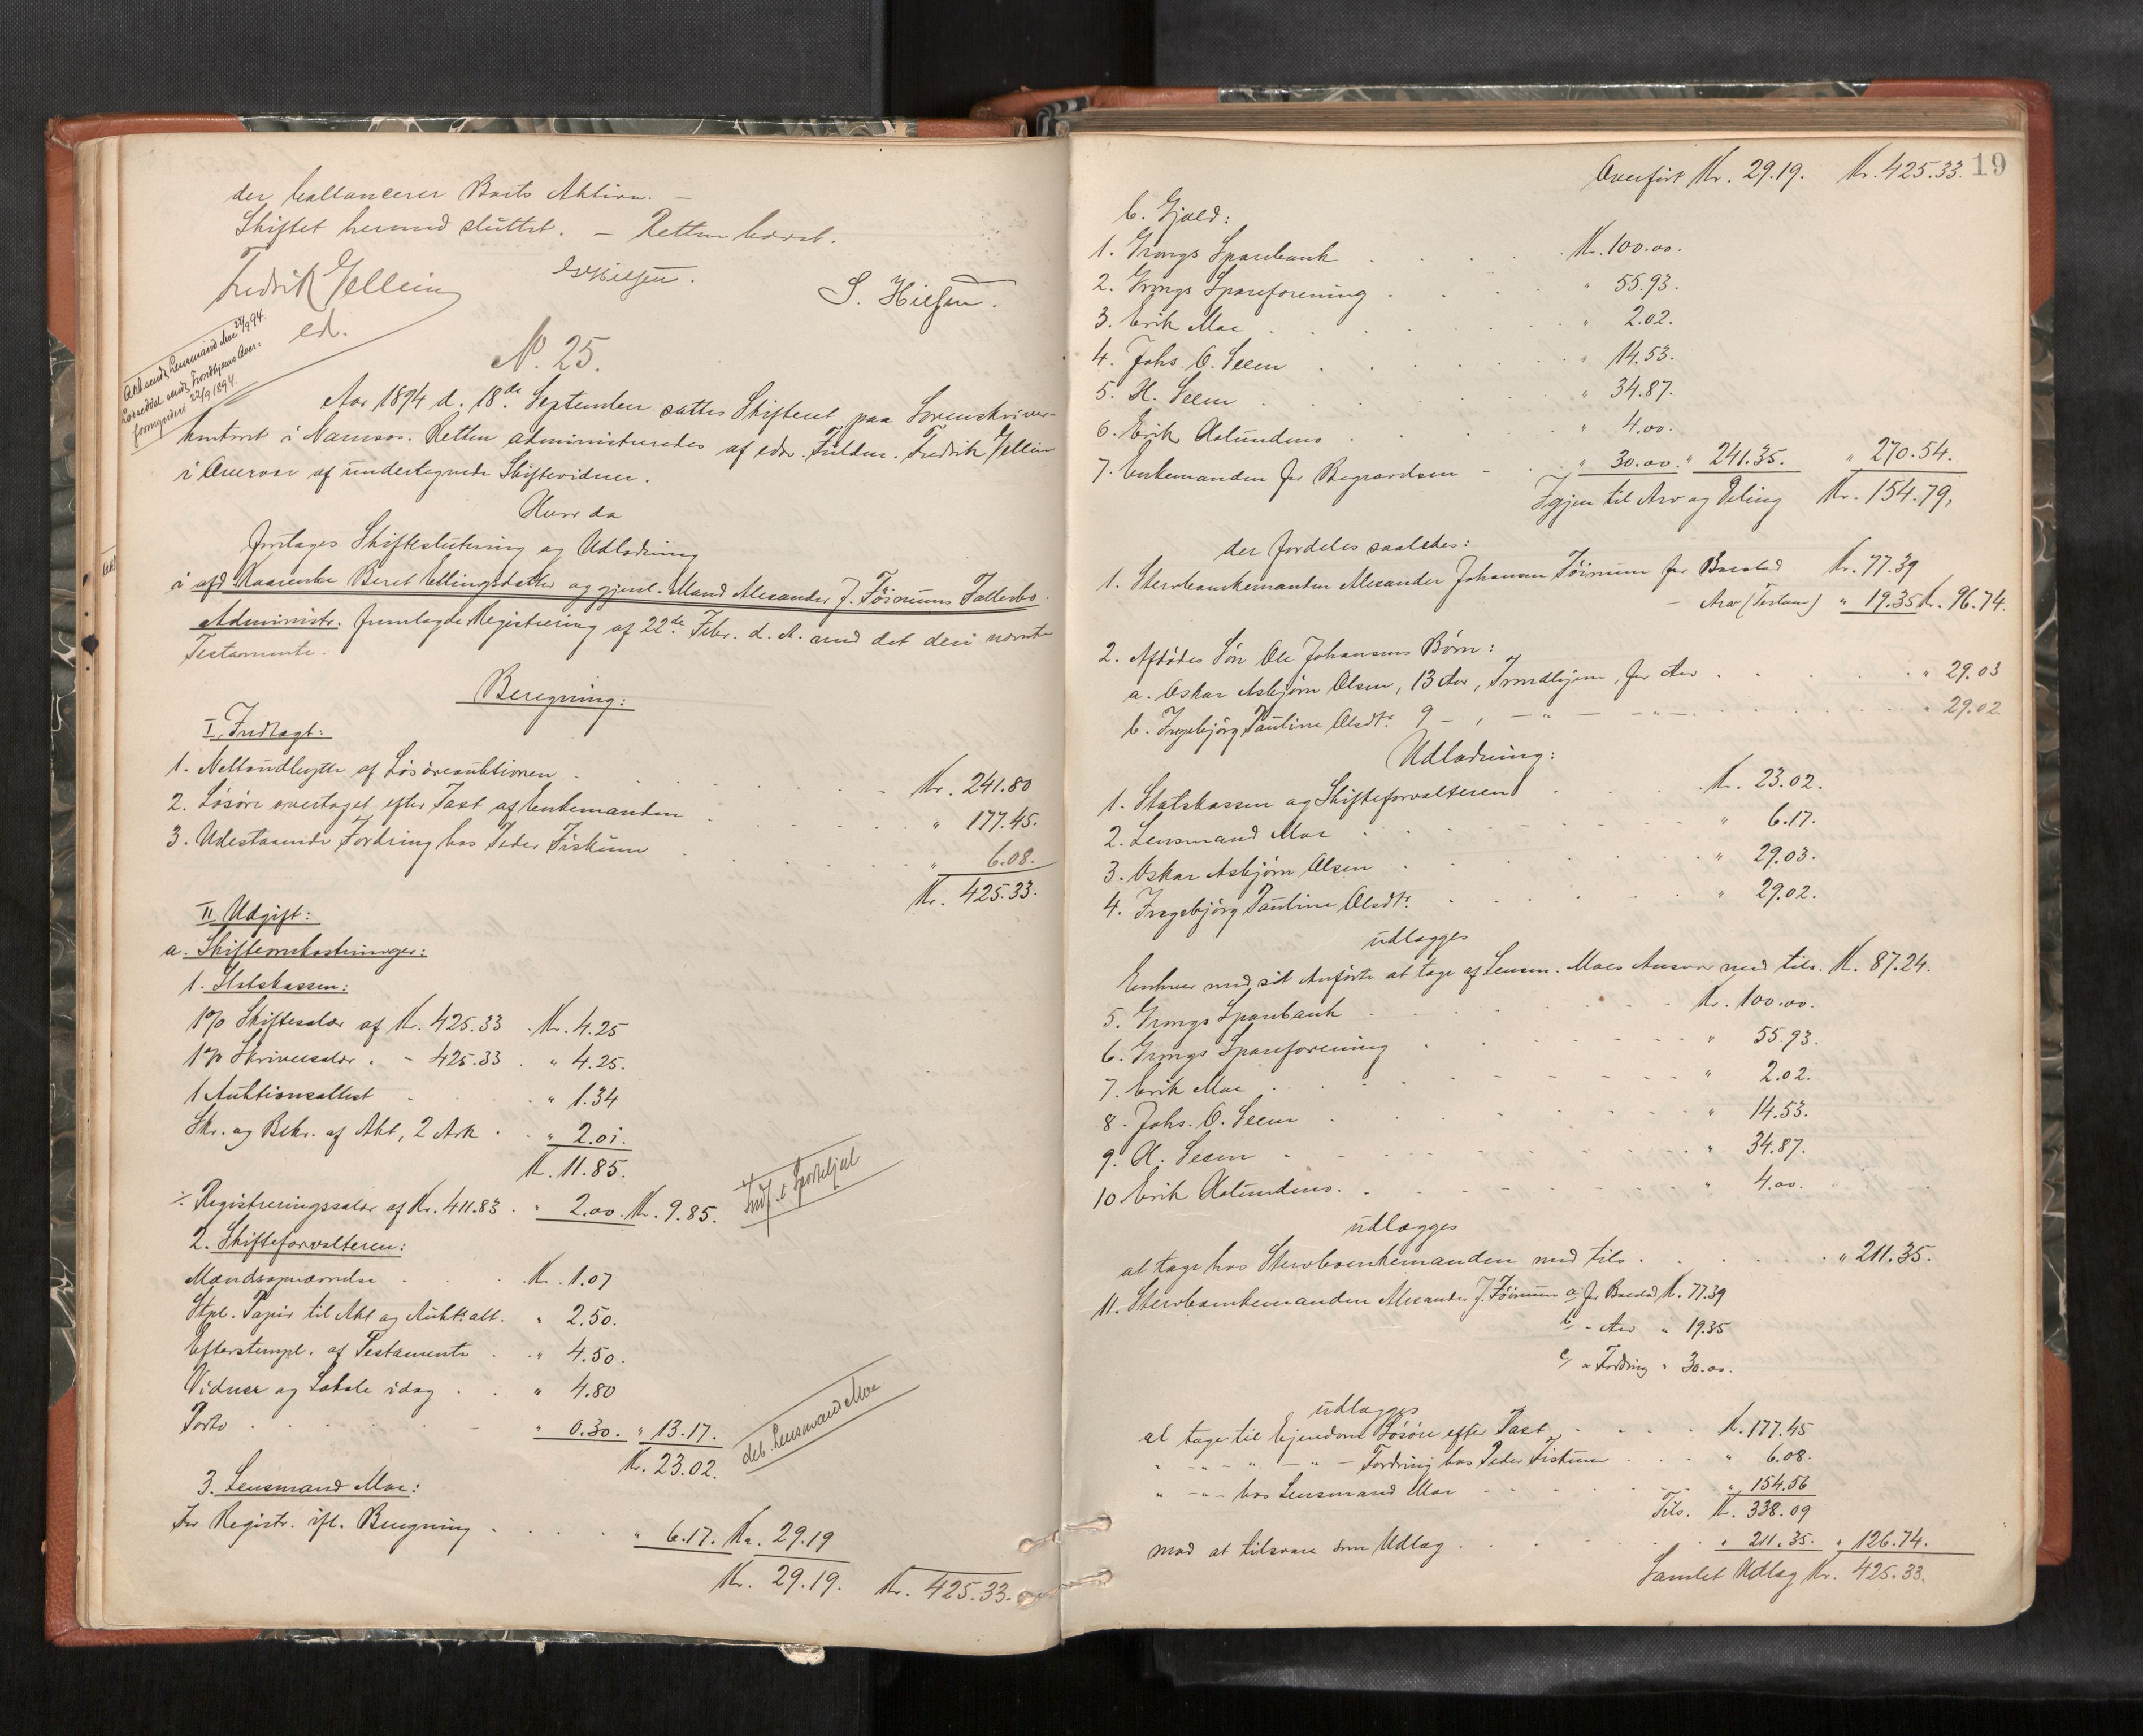 der ballancerer Boets Aktiva. –
Skiftet hermed sluttet. – Retten hævet.
Fredrik Gellein
ed.
S. Hielsen.
Akt sendt Lensmand Moe 22/9 94.
Lodseddel sendt Trondhjems Over-
formynderi 22/9 1894.
No. 25.
Aar 1894 d. 18de September sattes Skifteret paa Sorenskriver-
kontoret i Namsos. Retten administreredes af edsv. Fuldm. Fredrik Gellein
i Overvær af undertegnede Skiftevidner.
Hvor da
foretages Skifteslutning og Udlodning
i afd. Kaarenke Beret Ellingsdatter og gjenl. Mand Alexander J. Föinums Fællesbo.
Administr. fremlagde Registrering af 22de Febr. d. A. med det deri nævnte
Testamente.
Beregning:
I. Indtægt:
1. Nettoudbytte af Løsøreauktionen Kr. 241.80
2. Løsöre overtaget efter Taxt af Enkemanden " 177.45.
3. Udestaaende Fordring hos Peder Fiskum " 6.08.
Kr. 425.33.
II Udgift:
a. Skifteomkostninger:
1. Statskassen:
1% Skiftesalær af Kr. 425.33 Kr. 4.25
1% Skriversalær. - 425.33 " 4.25.
1 Auktionsattest " 1.34
Skr. og Bekr. af Akt, 2 Ark " 2.01.
Kr. 11.85.
÷ Registreringssalær af Kr. 411.83 " 2.00. Kr. 9.85.
Indf. i Sporteljnl
2. Skifteforvalteren:
Mændsopnævnelse Kr. 1.07
Stpl. Papir til Akt og Aukt. att. " 2.50.
Efterstempl. af Testamente " 4.50.
Vidner og Lokale idag " 4.80
Porto " 0.30. " 13.17.
Kr. 23.02.
deb. Lensmand Moe
3. Lensmand Moe:
For Registr. ifl. Beregning " 6.17. Kr. 29.19
Kr. 29.19. Kr. 425.33.
19
Overfört Kr. 29.19. Kr. 425.33.
b. Gjæld:
1. Grongs Sparebank Kr. 100.00.
2. Grongs Spareforening " 55.93.
3. Erik Moe " 2.02.
4. Johs. O. Seem " 14.53.
5. H. Seem " 34.87.
6. Erik Aslundmo " 4.00.
7. Enkemanden for Begravelsen " 30.00. " 241.35. " 270.54.
Igjen til Arv og Deling Kr. 154.79.
der fordeles saaledes:
1. Stervboenkemanden Alexander Johansen Föinum for Boeslod Kr. 77.39
– Arv (Testam) " 19.35 Kr. 96.74.
2. Afdödes Sön Ole Johansens Børn:
a. Oskar Asbjørn Olsen, 13 Aar, Trondhjem, for Arv " 29.03
b. Ingebjörg Pauline Olsdtr. 9 – , – " – – " – " 29.02
Udlodning:
1. Statskassen og Skifteforvalteren Kr. 23.02.
2. Lensmand Moe " 6.17.
3. Oskar Asbjørn Olsen " 29.03.
4. Ingebjörg Pauline Olsdtr. " 29.02.
udlægges
Enhver med sit Anførte at tage af Lensm. Moes Ansvar med tils. Kr. 87.24.
5. Grongs Sparebank Kr. 100.00.
6. Grongs Spareforening " 55.93.
7. Erik Moe " 2.02.
8. Johs. O. Seem " 14.53.
9. H. Seem " 34.87.
10 Erik Aslundmo. " 4.00.
udlægges
at tage hos Stervboenkemanden med tils. " 211.35.
11. Stervboenkemanden Alexander J. Föinum a/ for Boeslod Kr. 77.39
b/ - Arv " 19.35
c/ " Fordring " 30.00.
udlægges
at tage til Eiendom Løsöre efter Taxt Kr. 177.45
" – " – " – " – Fordring hos Peder Fiskum " 6.08.
" – " – hos Lensmand Moe " 154.56
Tils. Kr. 338.09
mod at tilsvare som Udlæg " 211.35. " 126.74.
Samlet Udlæg Kr. 425.33.